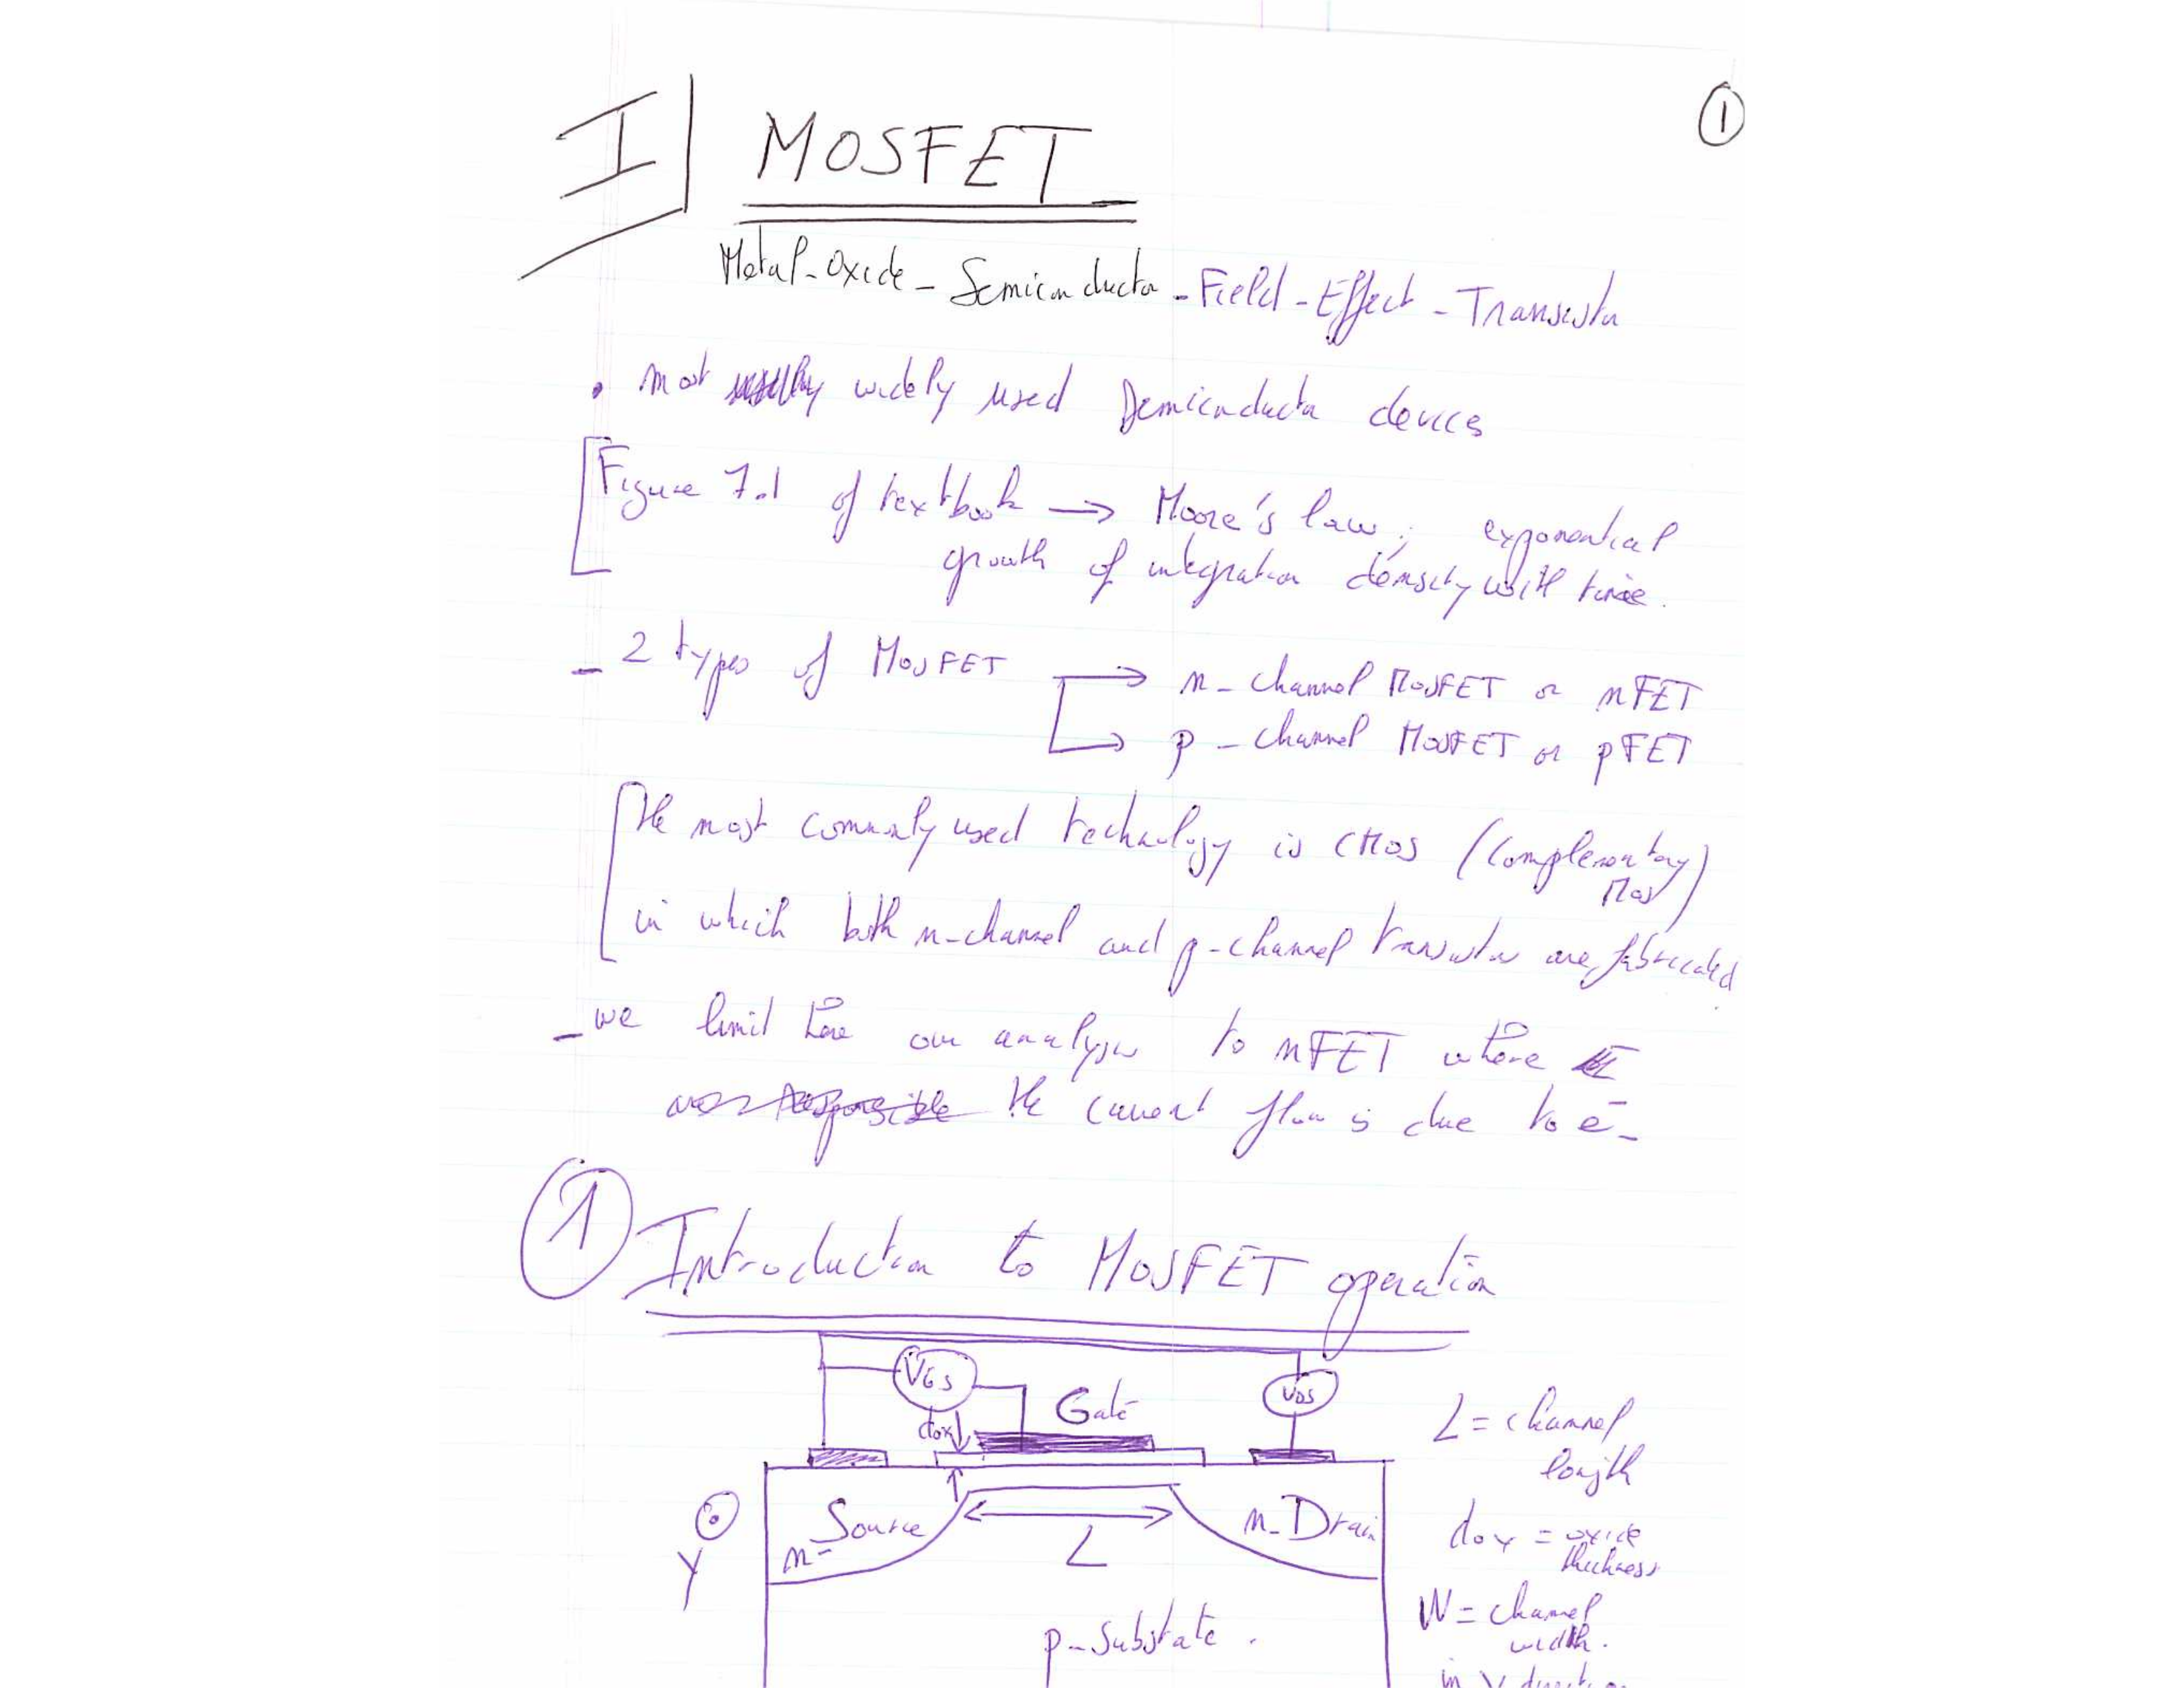 I
①
MOSFET
Metal-Oxide-Semiconductor-Field-Effect-Transistor
• most widely used semiconductor devices
Figure 7.1 of textbook → Moore's law; exponential
growth of integration density with time.
- 2 types of MOSFET → n-channel MOSFET or nFET
→ p-channel MOSFET or pFET
the most commonly used technology is CMOS (Complementary
MOS)
in which both n-channel and p-channel transistor are fabricated
- we limit here our analysis to nFET where
the current flow is due to e⁻
① Introduction to MOSFET operation
VGS
VDS
dox
Gate
L = channel
length
Source
n-
L
n-Drain
Y
dox = oxide
thickness
W = channel
width.
p-substrate.
in Y direction